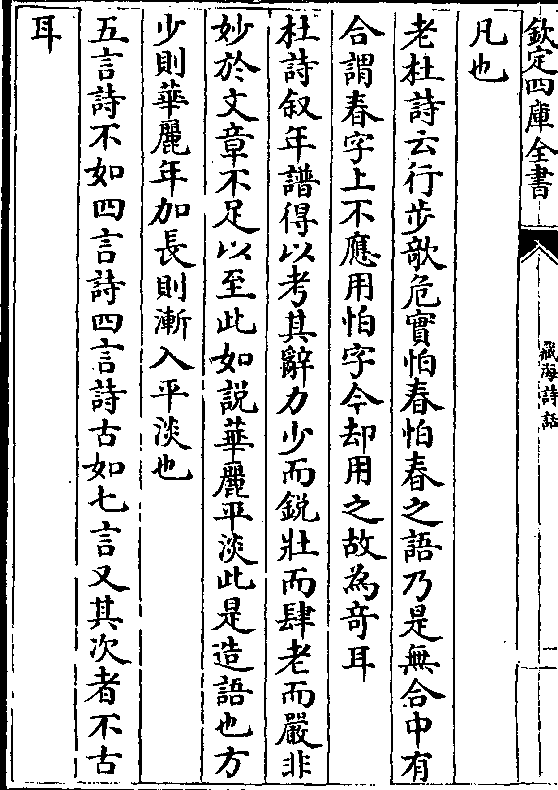 欽定四庫全書
藏海詩話
二
凡也
老杜詩云行步欹危實怕春怕春之語乃是無合中有
合謂春字上不應用怕字今却用之故為奇耳
杜詩叙年譜得以考其辭力少而鋭壯而肆老而嚴非
妙於文章不足以至此如説華麗平淡此是造語也方
少則華麗年加長則漸入平淡也
五言詩不如四言詩四言詩古如七言又其次者不古
耳